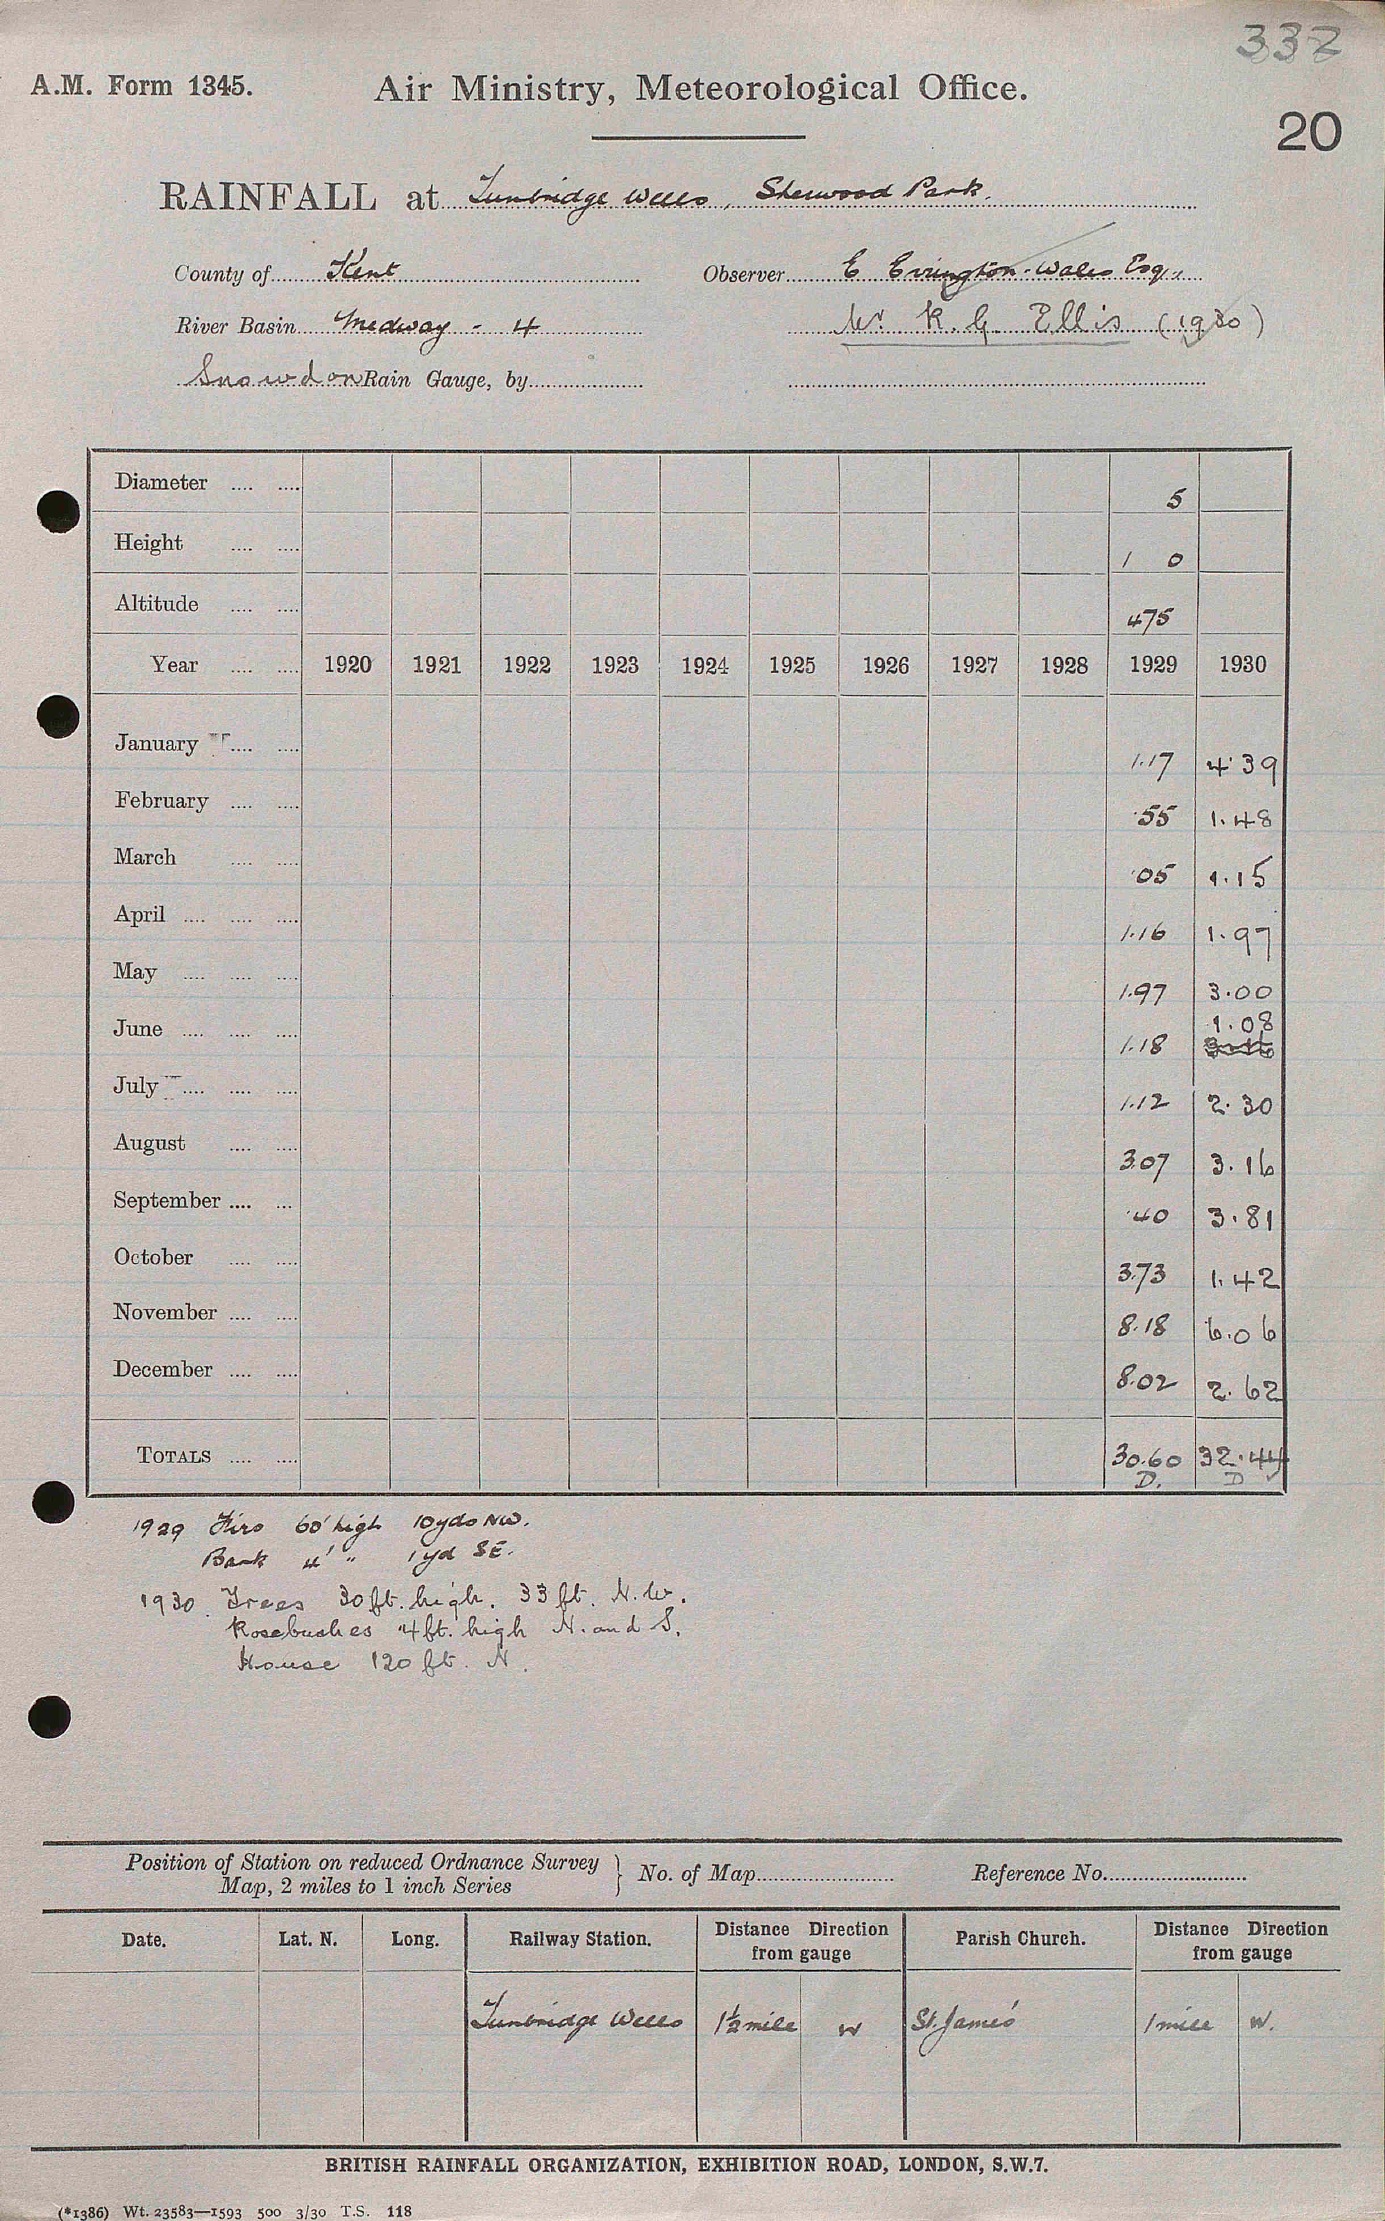 332
A.M. Form 1345. Air Ministry, Meteorological Office.
20
RAINFALL at Tunbridge Wells, Sherwood Park.
County of Kent Observer E Errington-Wales Esq.,
River Basin Medway - 4 Mr R. G. Ellis (1930)
Snowdon Rain Gauge, by
Diameter 5
Height 1 0
Altitude 475
Year 1920 1921 1922 1923 1924 1925 1926 1927 1928 1929 1930
January 1.17 4.39
February .55 1.48
March .05 1.15
April 1.16 1.97
May 1.97 3.00
1.08
June 1.18
July 1.12 2.30
August 3.07 3.16
September .40 3.81
October 3.73 1.42
November 8.18 6.06
December 8.02 2.62
TOTALS 30.60 32.44
D. D
1929 Firs 60' high 10yds NW.
Bank 4' " 1yd SE.
1930. Trees 30ft. high. 33 ft. N.W.
Rosebushes 4ft. high N. and S.
House 120 ft. N.
Position of Station on reduced Ordnance Survey
Map, 2 miles to 1 inch Series } No. of Map Reference No.
Date. Lat. N. Long. Railway Station. Distance Direction from gauge Parish Church. Distance Direction from gauge
Tunbridge Wells 1½ mile W St. James' 1 mile W.
BRITISH RAINFALL ORGANIZATION, EXHIBITION ROAD, LONDON, S.W.7.
(*1386) Wt. 23583—1593 500 3/30 T.S. 118